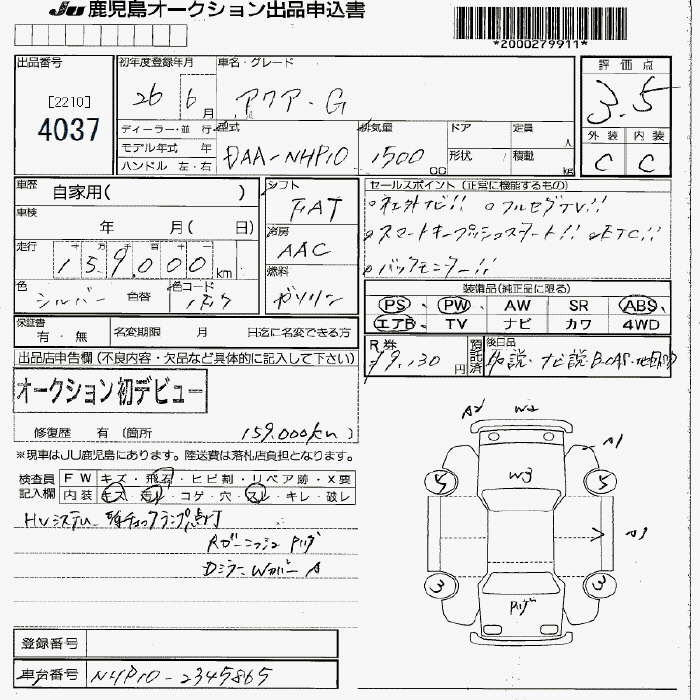 JU 鹿児島オークション出品申込書
*2000279911*
出品番号 [2210] 4037
初年度登録年月 26 6月
車名・グレード アクア・G
評価点 3.5
外装 C 内装 C
ディーラー・並行
モデル年式 年
ハンドル 左・右
型式 DAA-NHP10
排気量 1500 CC
ドア 形状
定員 人
積載 kg
車歴 自家用( )
車検 年 月( 日)
走行 159,000 km
色 シルバー 色替
色コード 1F7
シフト FAT
冷房 AAC
燃料 ガソリン
セールスポイント(正常に機能するもの)
○社外ナビ!! ○フルセグTV!!
○スマートキープッシュスタート!! ○ETC!!
○バックモニター!!
装備品(純正品に限る)
PS PW AW SR ABS
エアB TV ナビ カワ 4WD
保証書 有・無
名変期限 月 日迄に名変できる方
R券 ¥9,130
預託済
後日品 取説・ナビ説
出品店申告欄(不良内容・欠品など具体的に記入して下さい)
オークション初デビュー
修復歴 有(箇所 159,000km)
※現車はJU鹿児島にあります。陸送費は落札店負担となります。
検査員記入欄
FW キズ・飛石・ヒビ割・リペア跡・X要
内装 キズ・汚れ・コゲ・穴・スレ・キレ・破レ
HVシステム チェックランプ点灯
Rガーニッシュ
Dミラー Wカバー A
A2 W2
A1
W3
5 5
A3
3 3
登録番号
車台番号 NHP10-2345865